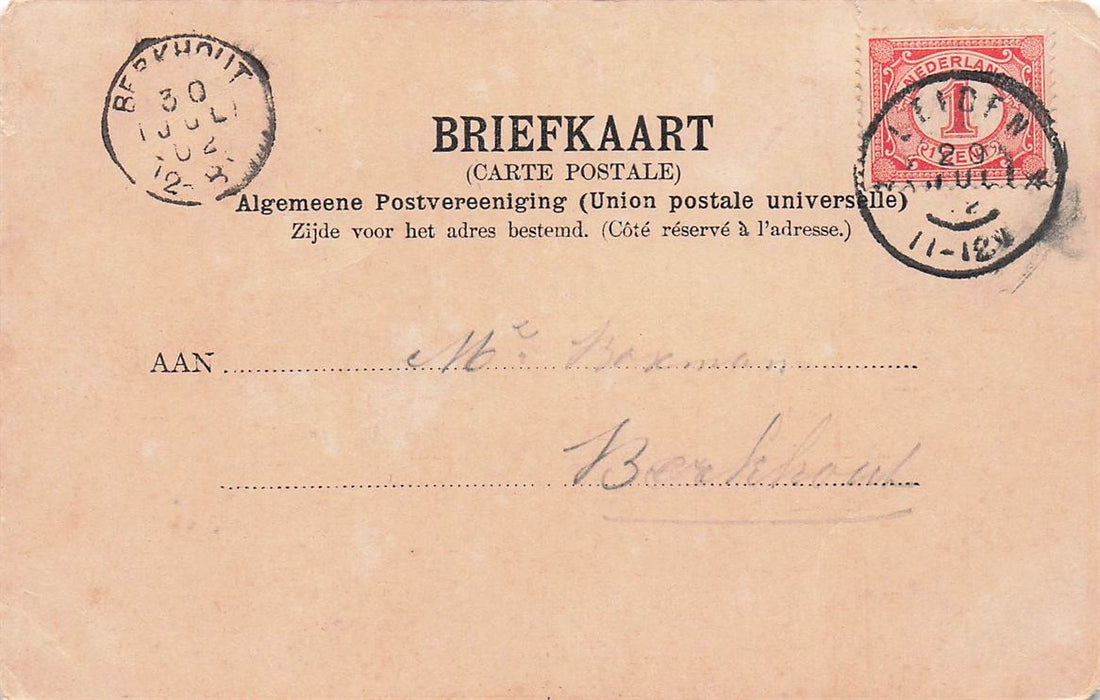 BERKHOUT
30
JULI
02
12-
NEDERLAND
1
1 CENT
LEIDEN
29
JULI
2
11-12V
BRIEFKAART
(CARTE POSTALE)
Algemeene Postvereeniging (Union postale universelle)
Zijde voor het adres bestemd. (Côté réservé à l'adresse.)
AAN Me. Boxman
Berkhout